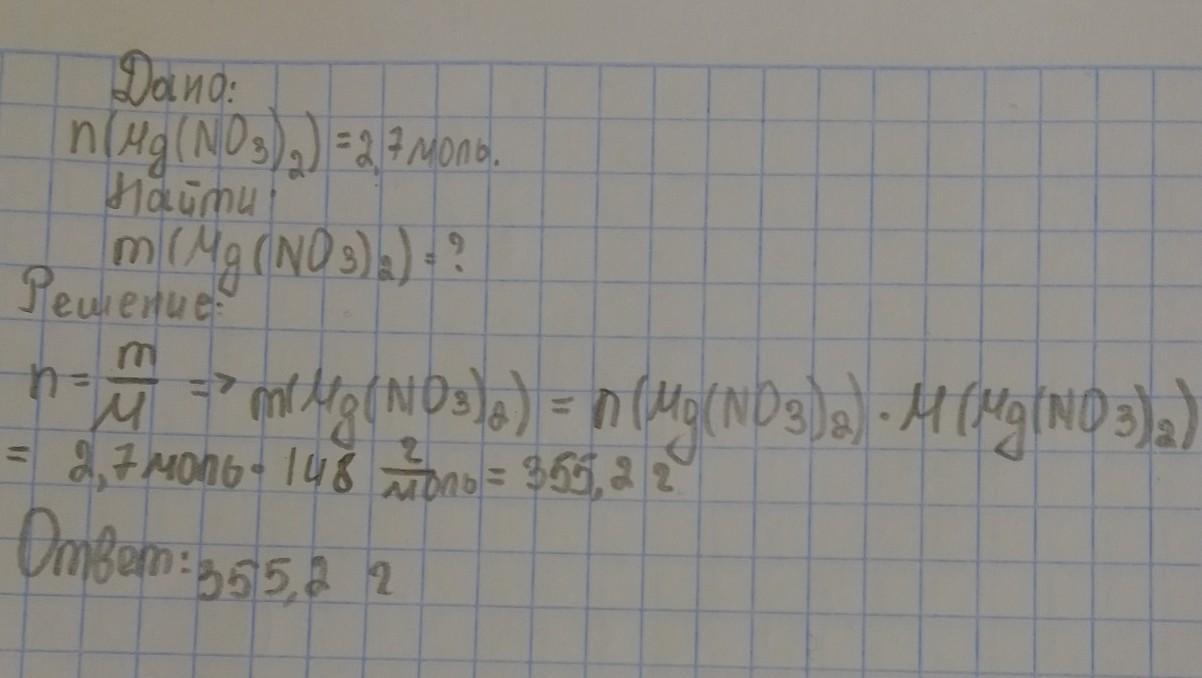 Дано:
n(Mg(NO3)2)=2,7моль.
Найти:
m(Mg(NO3)2)=?
Решение:
n=m/M => m(Mg(NO3)2) = n(Mg(NO3)2)·M(Mg(NO3)2)
= 2,7моль·148 г/моль=355,2 г
Ответ:355,2 г